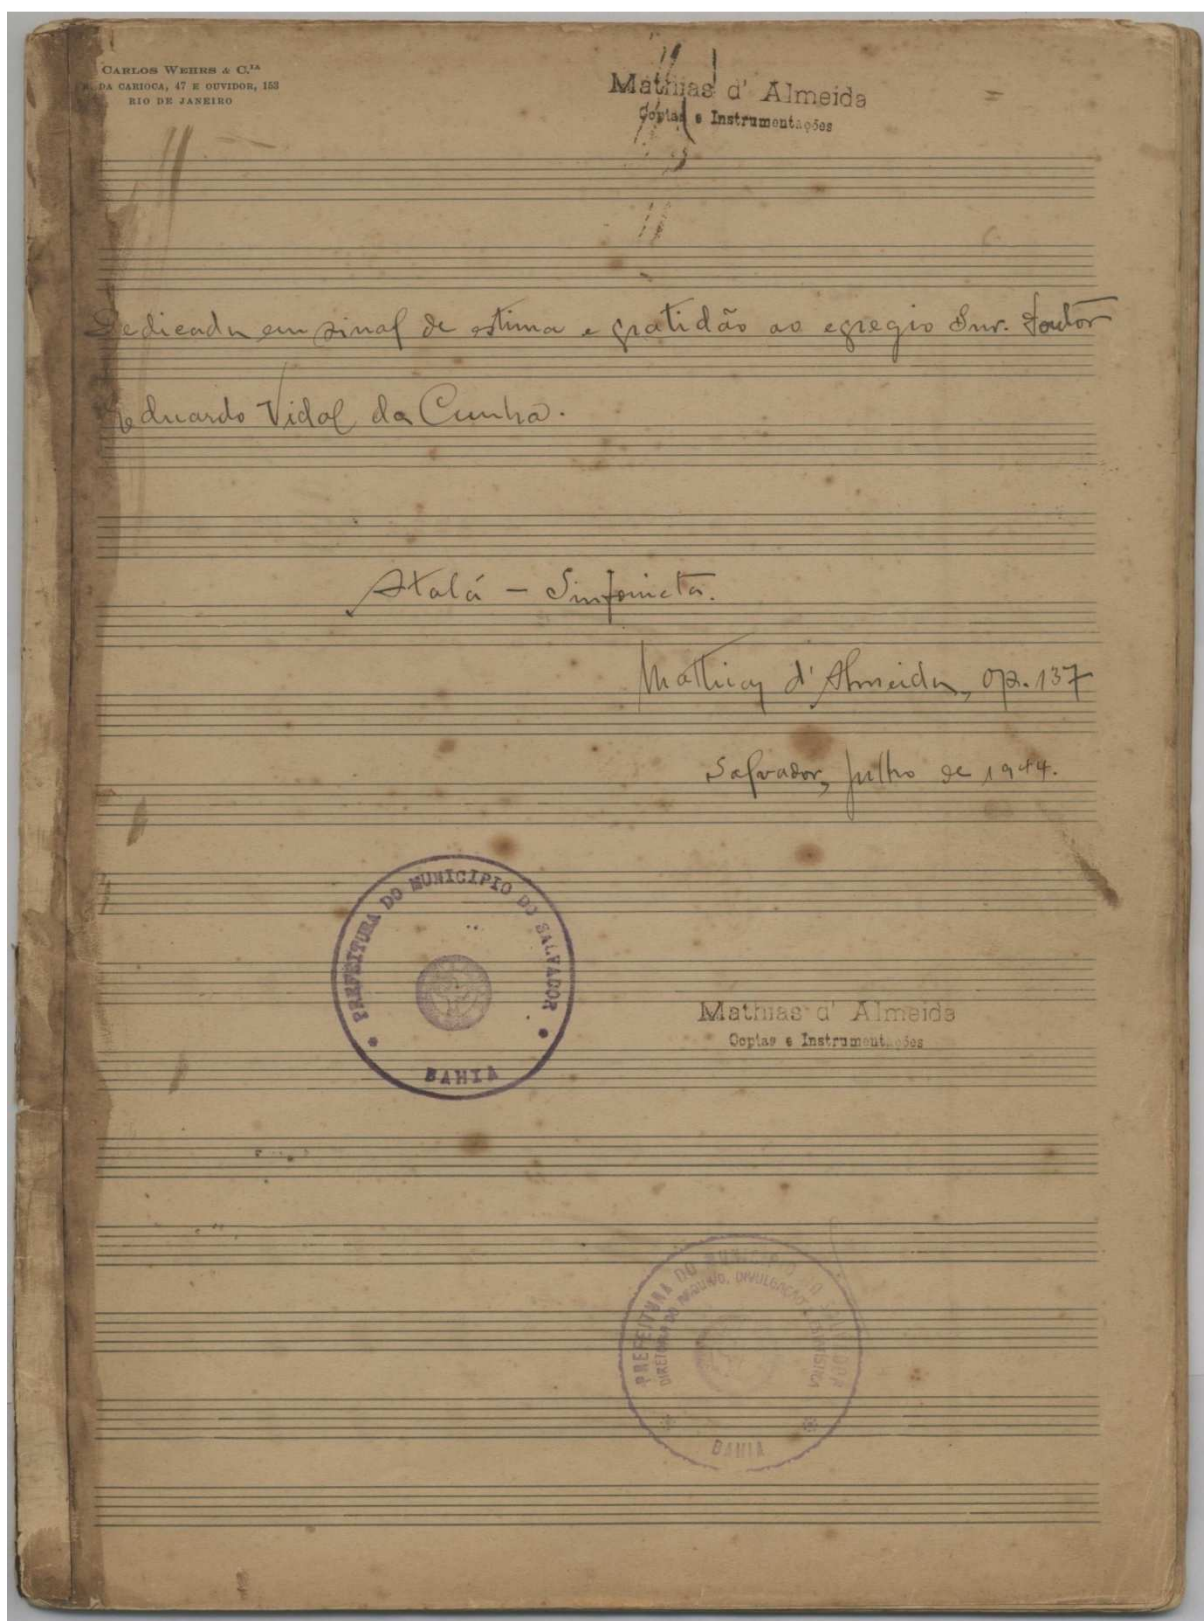 CARLOS WEHRS & C.IA
R. DA CARIOCA, 47 E OUVIDOR, 153
RIO DE JANEIRO
Mathias d' Almeida
Copias e Instrumentações
Dedicada em sinal de estima e gratidão ao egregio Snr. Doutor
Eduardo Vidal da Cunha.
Atalá - Sinfonieta.
Mathias d'Almeida, op. 137
Salvador, Julho de 1944.
PREFEITURA DO MUNICIPIO DO SALVADOR
BAHIA
Mathias d' Almeida
Copias e Instrumentações
PREFEITURA DO MUNICIPIO DO SALVADOR
DIRETORIA DO ARQUIVO, DIVULGAÇÃO E ESTATISTICA
BAHIA